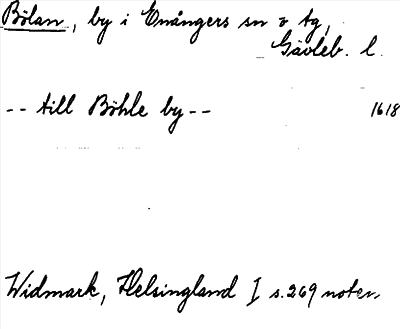 Bölan, by i Enångers sn o tg,
Gävleb. l.
-- till Böhle by -- 1618
Widmark, Helsingland I s. 269 noten